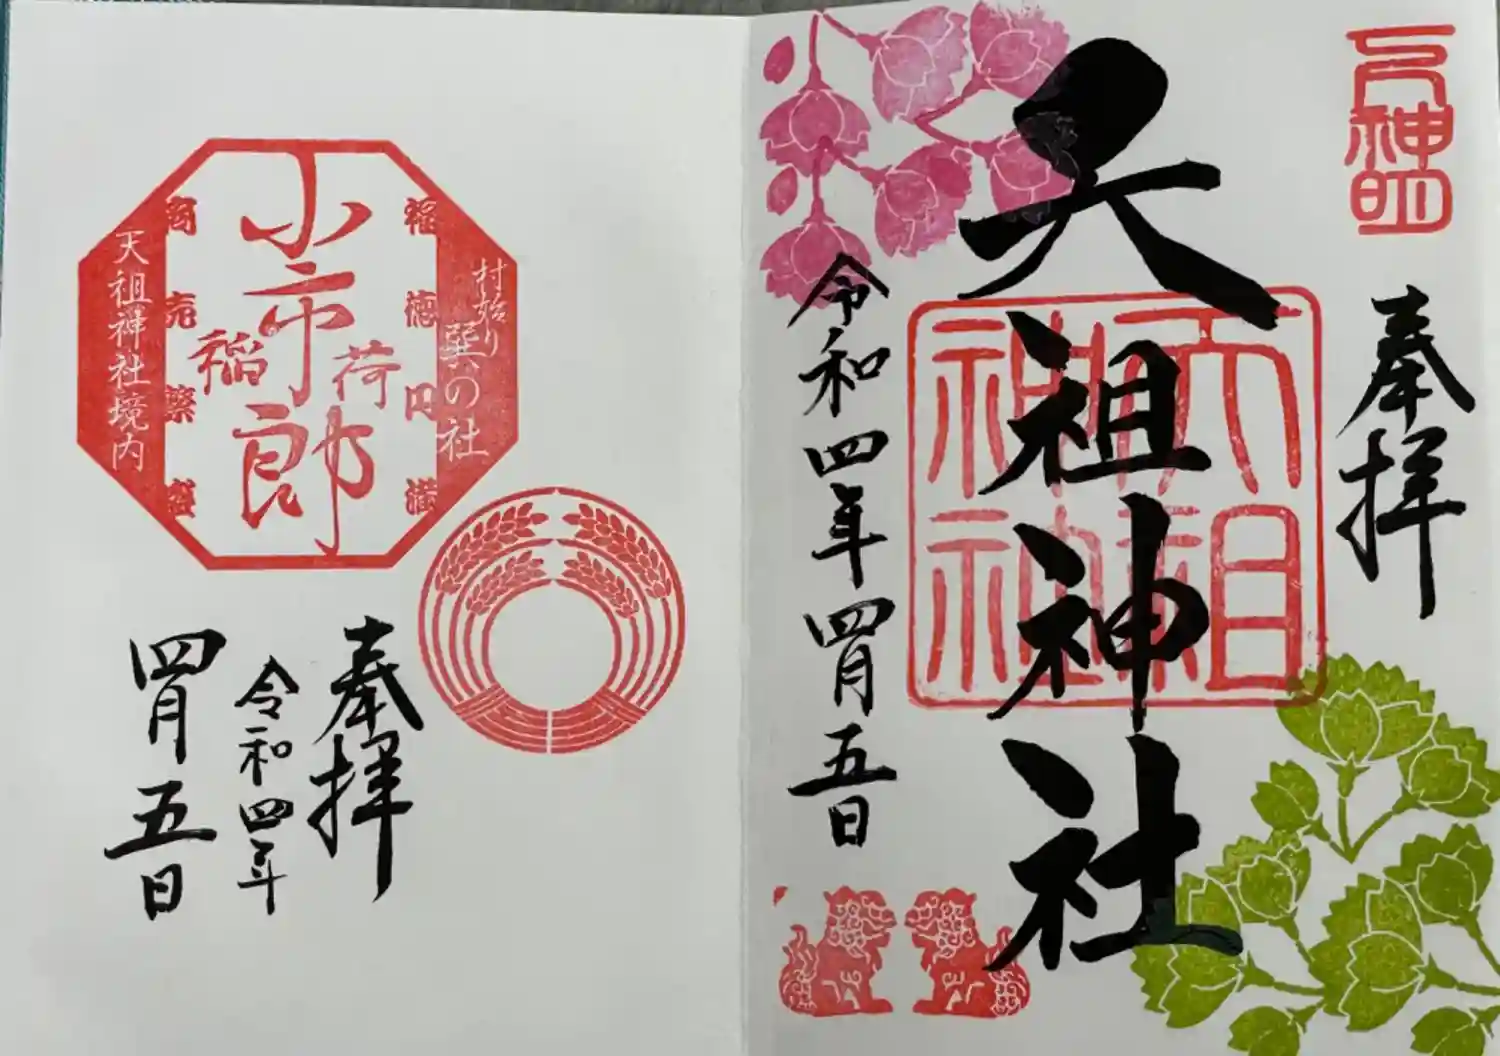 上神明
奉拝
天祖神社
天祖神社
令和四年四月五日
福徳円満
村始り
巽の社
小市郎
稲荷
商売繁盛
天祖神社境内
奉拝
令和四年
四月五日